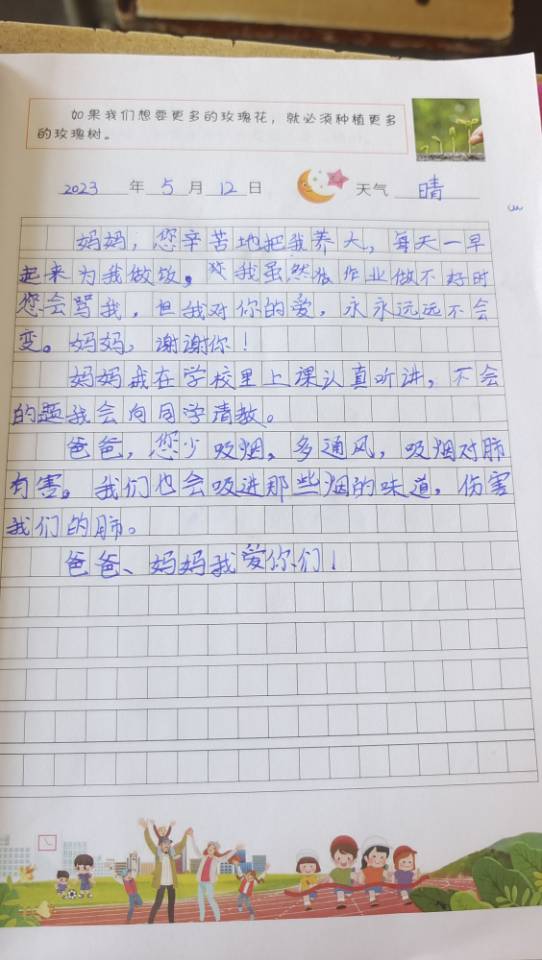 如果我们想要更多的玫瑰花，就必须种植更多
的玫瑰树。
2023年5月12日 天气 晴
妈妈，您辛苦地把我养大，每天一早
起来为我做饭，我虽然作业做不好时
您会骂我，但我对你的爱，永永远远不会
变。妈妈，谢谢你！
妈妈我在学校里上课认真听讲，不会
的题我会向同学请教。
爸爸，您少吸烟，多通风，吸烟对肺
有害。我们也会吸进那些烟的味道，伤害
我们的肺。
爸爸、妈妈我爱你们！